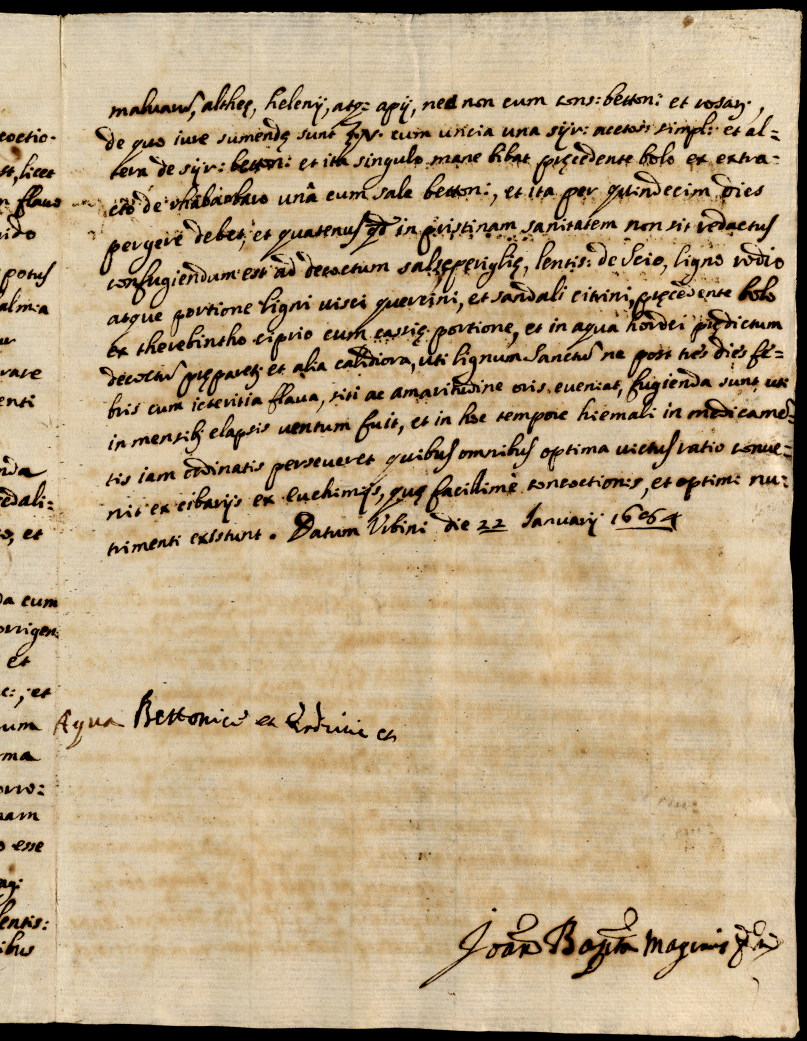 coctio-
st, licet
n flavo
potus
almia
rare
enti
nda
edali:
o, et
da cum
orrigen
et
c:, et
um
ma
orro:
nam
o esse
lentis:
ibus
malvarũ, altheę, helenij, atq; apij, nec non cum cons: betton: et rosar:,
de quo iure sumendę sunt cum uncia una sijr: acetosi simpl: et al=
tera de sijr: betton: et ita singulo mane bibat pręcedente bolo ex extra=
cto de rhabarbaro unâ cum sale betton:, et ita per quindecim dies
pergere debet, et quatenus in pristinam sanitatem non sit redactus
confugiendum est ad decoctum salsęperiglię, lentis: de Scio, ligno rodio
atque portione ligni visci quercini, et sandali citrini, pręcedente bolo
ex therebintho ciprio cum cassię portione, et in aqua hordei prędictum
decoctũ pręparetʒ et alia calidiora, uti lignum Sanctũ ne post tres dies fe=
bris cum icteritia flava, siti ac amaritudine oris eveniat, fugienda sunt uti
in mensibʒ elapsis ventum fuit, et in hoc tempore hiemali in medicamẽ=
tis iam ordinatis perseveret quibus omnibus optima victus ratio conve=
nit ex cibarijs ex euchimijs, quę facillimè concoctionis, et optimi nu=
trimenti existunt. Datum Urbini die 22 Ianuarij 1664
Aqua Bettonice et et
Joań Bapta Maginis